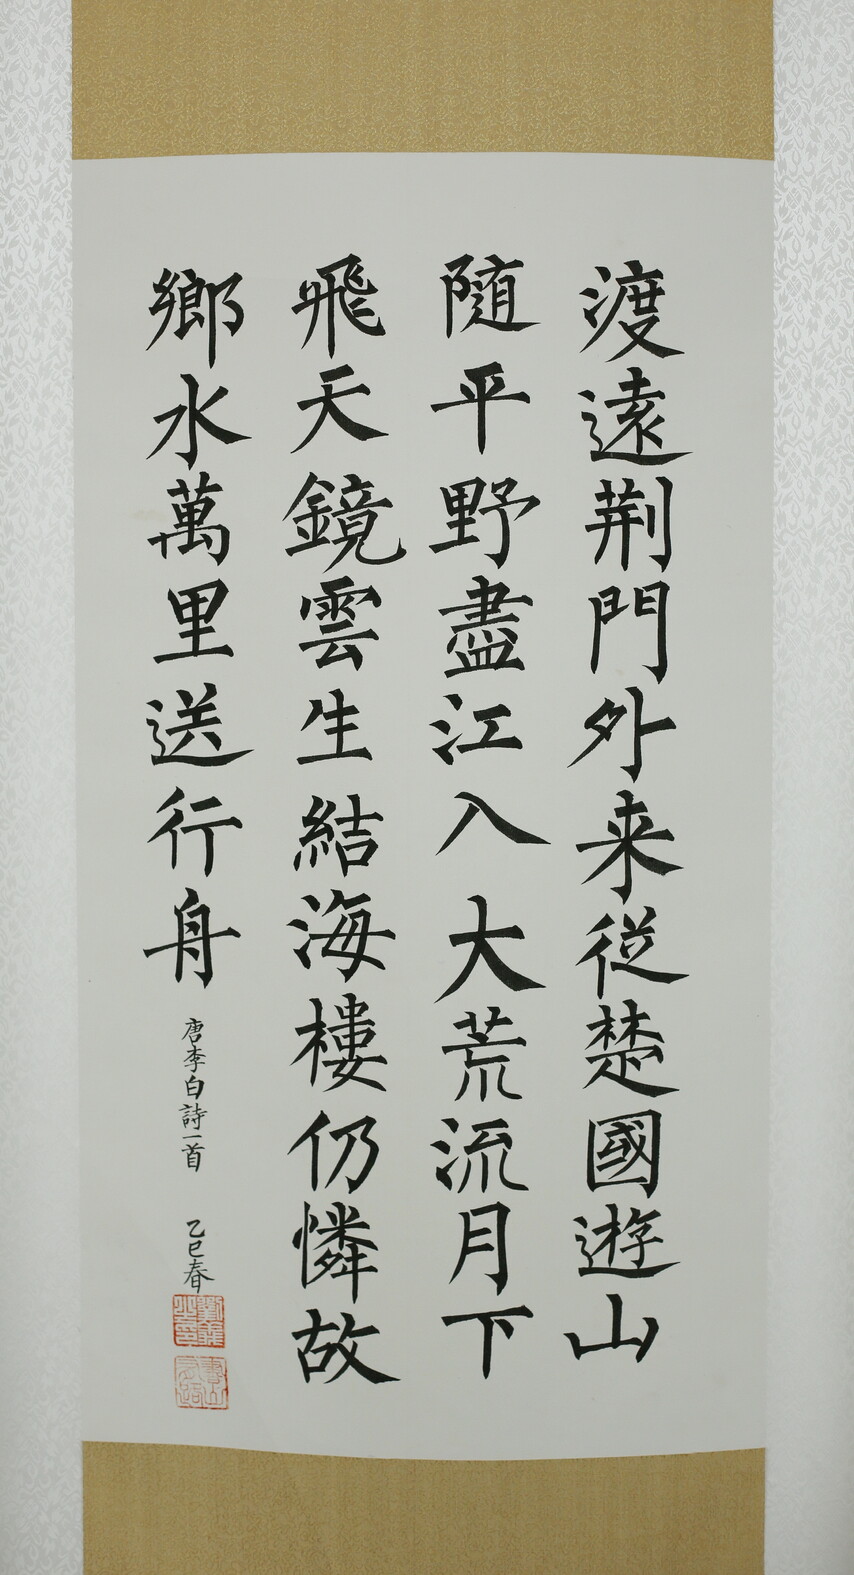 渡遠荆門外来從楚國遊山
随平野盡江入大荒流月下
飛天鏡雲生結海樓仍憐故
鄉水萬里送行舟
唐李白詩一首
乙巳春